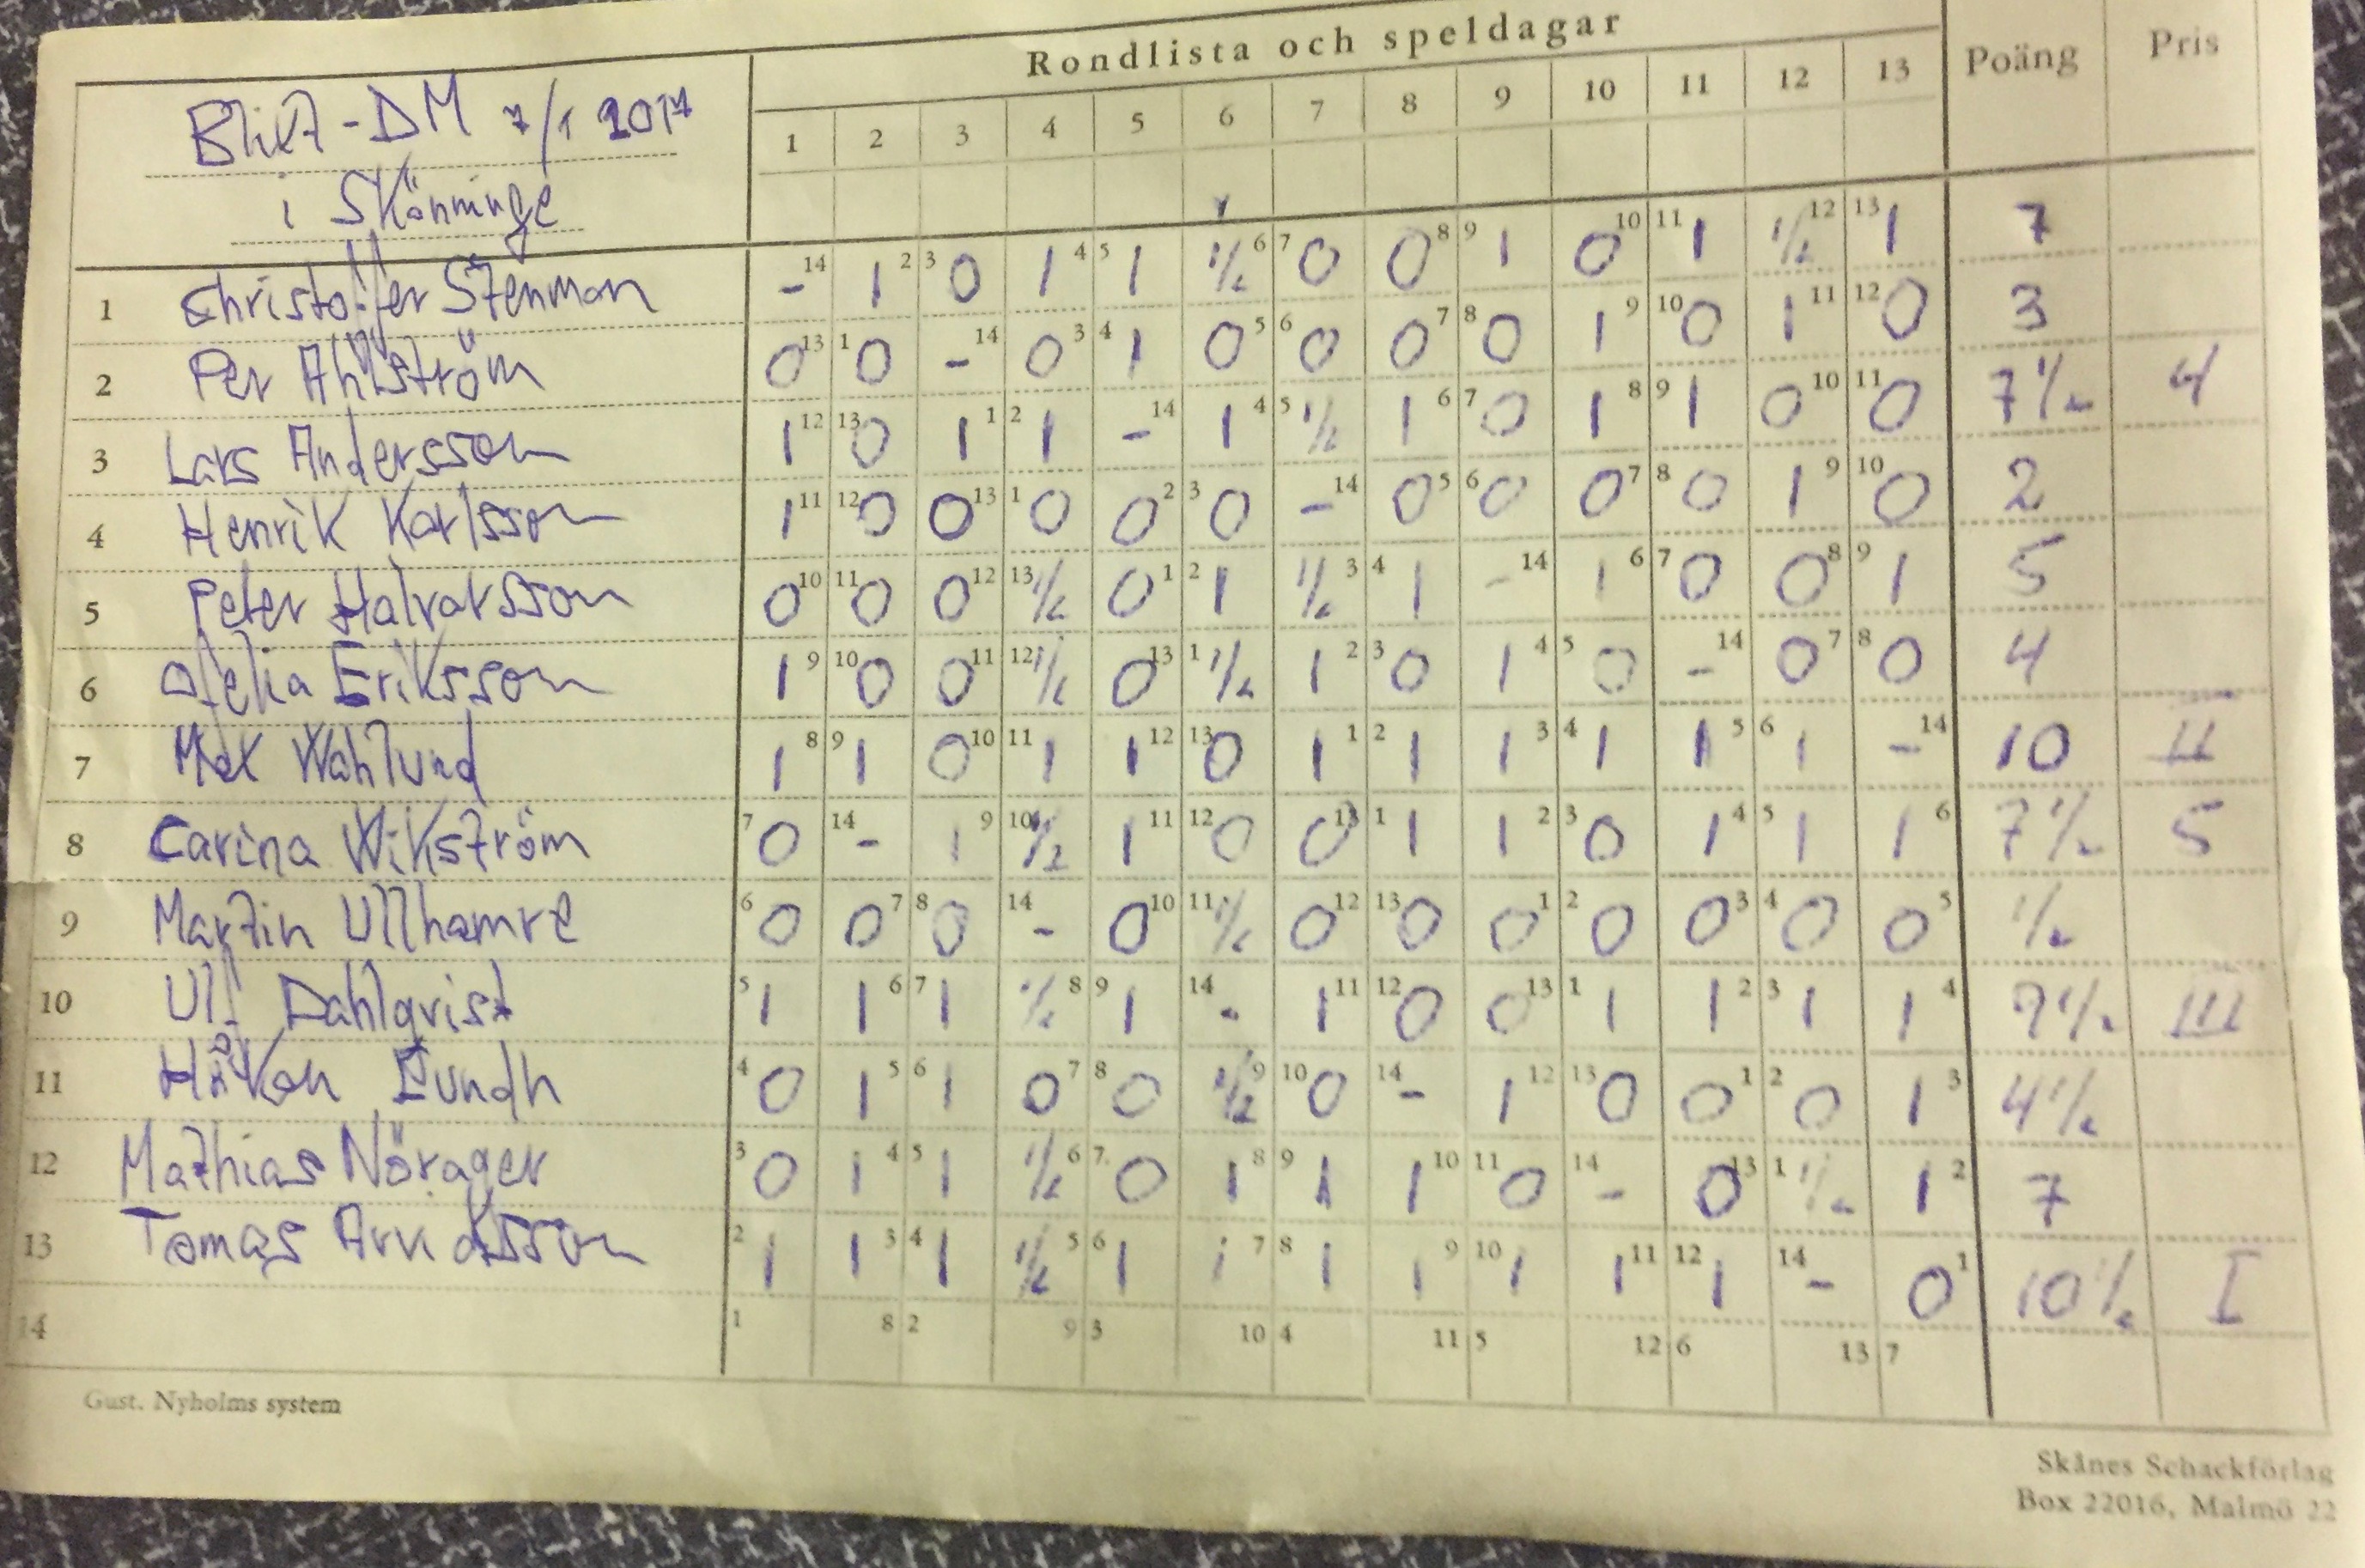 Rondlista och speldagar
Poäng Pris
Blixt-DM 7/1 2017
i Skänninge
1 2 3 4 5 6 7 8 9 10 11 12 13
1 Christoffer Stenman -14 1 2 3 0 1 4 5 1 1/2 6 7 0 0 8 9 1 0 10 11 1 1/2 12 13 1 7
2 Per Ahlström 0 13 1 0 -14 0 3 4 1 0 5 6 0 0 7 8 0 1 9 10 0 1 11 12 0 3
3 Lars Andersson 1 12 13 0 1 1 2 1 -14 1 4 5 1/2 1 6 7 0 1 8 9 1 0 10 11 0 7 1/2 4
4 Henrik Karlsson 1 11 12 0 0 13 1 0 0 2 3 0 -14 0 5 6 0 0 7 8 0 1 9 10 0 2
5 Peter Halvarsson 0 10 11 0 0 12 13 1/2 0 1 2 1 1/2 3 4 1 -14 1 6 7 0 0 8 9 1 5
6 Ofelia Eriksson 1 9 10 0 0 11 12 1/2 0 13 1 1/2 1 2 3 0 1 4 5 0 -14 0 7 8 0 4
7 Max Wahlund 1 8 9 1 0 10 11 1 1 12 13 0 1 1 2 1 1 3 4 1 1 5 6 1 -14 10 II
8 Carina Wikström 7 0 14 - 1 9 10 1/2 1 11 12 0 0 13 1 1 1 2 3 0 1 4 5 1 1 6 7 1/2 5
9 Martin Ullhamre 6 0 0 7 8 0 14 - 0 10 11 1/2 0 12 13 0 0 1 2 0 0 3 4 0 0 5 1/2
10 Ulf Dahlqvist 5 1 1 6 7 1 1/2 8 9 1 14 - 1 11 12 0 0 13 1 1 1 2 3 1 1 4 9 1/2 III
11 Håkan Lundh 4 0 1 5 6 1 0 7 8 0 1/2 9 10 0 14 - 1 12 13 0 0 1 2 0 1 3 4 1/2
12 Mathias Nörager 3 0 1 4 5 1 1/2 6 7 0 1 8 9 1 1 10 11 0 14 - 0 13 1 1/2 1 2 7
13 Tomas Arvidsson 2 1 1 3 4 1 1/2 5 6 1 1 7 8 1 1 9 10 1 1 11 12 1 14 - 0 1 10 1/2 I
14 1 8 2 9 3 10 4 11 5 12 6 13 7
Gust. Nyholms system
Skånes Schackförlag
Box 22016, Malmö 22